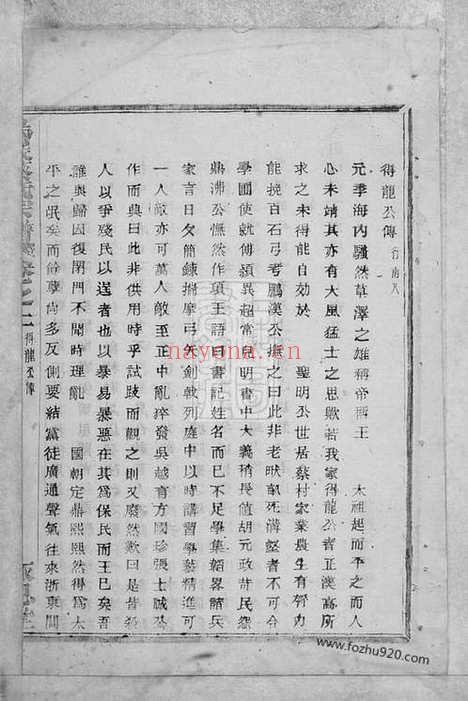 得龍公傳 行南八
元季海內騷然草澤之雄稱帝稱王 太祖起而平之而人
心未靖其亦有大風猛士之思歟若我家得龍公者正漢高所
求之未得能自効於 聖明公世居蔡村家業農生有膂力
能挽百石弓考鵬漢公撫之曰此非老死溝壑者不可令
學圃使就傅穎異超常兒明書中大義稍長值胡元政苛民怨
鼎沸公慨然作項王語曰書記姓名而已不足學集韜畧諸兵
家言日夕簡鍊揣摩弓矢劍戟列庭中以時講習學藝精進可
一人敵亦可萬人敵至正中亂瘁發吳越有方國珍張士誠公
作而與曰此非供用時乎試跂而觀之則又廢然歎曰是其
人以殘民以送者也以暴易暴惡在其為保民而王已矣吾
誰與歸因復閉門不聞時理亂 國朝定鼎熙熙然得為太
平之氓矣而餘孽尚多反側要結黨徒廣通聲氣往來浙東閩
得龍公傳
nayona.cn
www.fozhu920.com